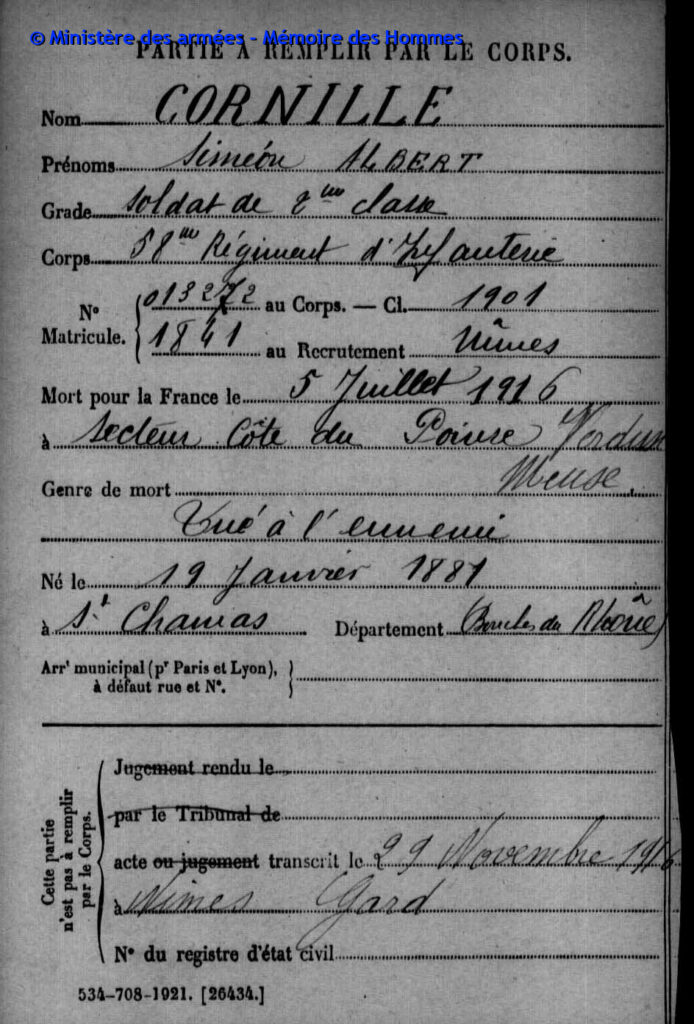 © Ministère des armées - Mémoire des Hommes
PARTIE À REMPLIR PAR LE CORPS.
Nom CORNILLE
Prénoms Siméon ALBERT
Grade Soldat de 2me classe
Corps 58me Régiment d'Infanterie
N° Matricule. { 013272 au Corps. — Cl. 1901
1841 au Recrutement Nîmes
Mort pour la France le 5 Juillet 1916
à Secteur Côte du Poivre Verdun
Meuse.
Genre de mort
Tué à l'ennemi
Né le 19 Janvier 1881
à St Chamas Département (Bouches du Rhône)
Arrt municipal (pr Paris et Lyon), à défaut rue et N°. }
Cette partie n'est pas à remplir par le Corps. {
Jugement rendu le
par le Tribunal de
acte ou jugement transcrit le 29 Novembre 1916
à Nîmes Gard
N° du registre d'état civil
534-708-1921. [26434.]